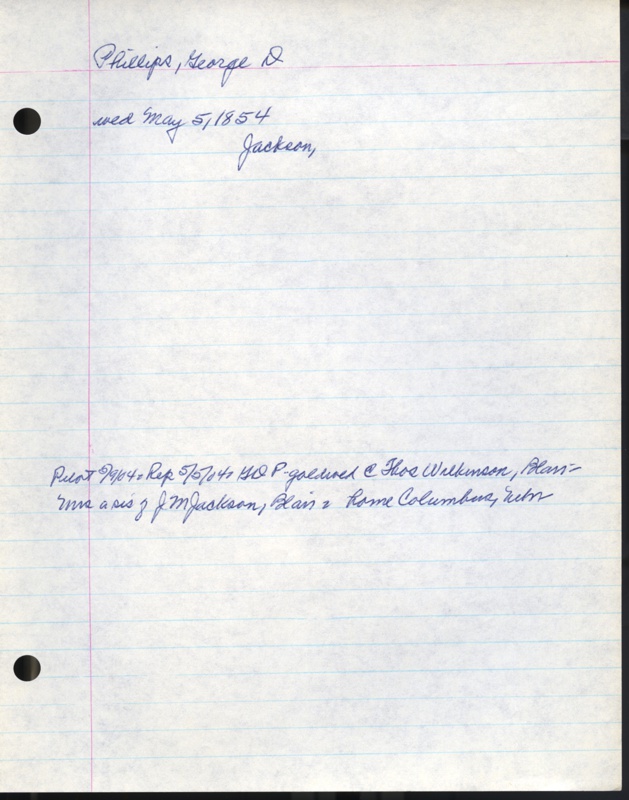 Phillips, George D
wed May 5, 1854
Jackson,
Pilot 5/9/04 & Rep 5/5/04 & GDP-goldwed @ Thos Wilkinson, Blair-
mrs a sis of J M Jackson, Blair & home Columbus, Nebr